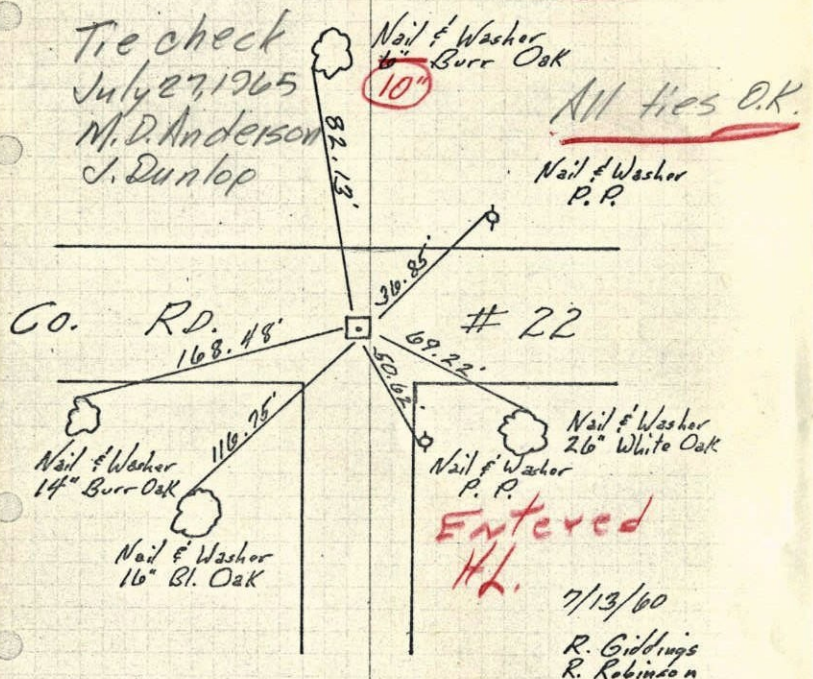 Tie check
July 27, 1965
M. D. Anderson
J. Dunlop
Nail & Washer
6" Burr Oak
10"
All ties O.K.
Nail & Washer
P. P.
82.13'
36.85'
Co. RD. # 22
168.48'
69.22'
50.62'
116.75'
Nail & Washer
14" Burr Oak
Nail & Washer
26" White Oak
Nail & Washer
P. P.
Nail & Washer
16" Bl. Oak
Entered
HL.
7/13/60
R. Giddings
R. Robinson